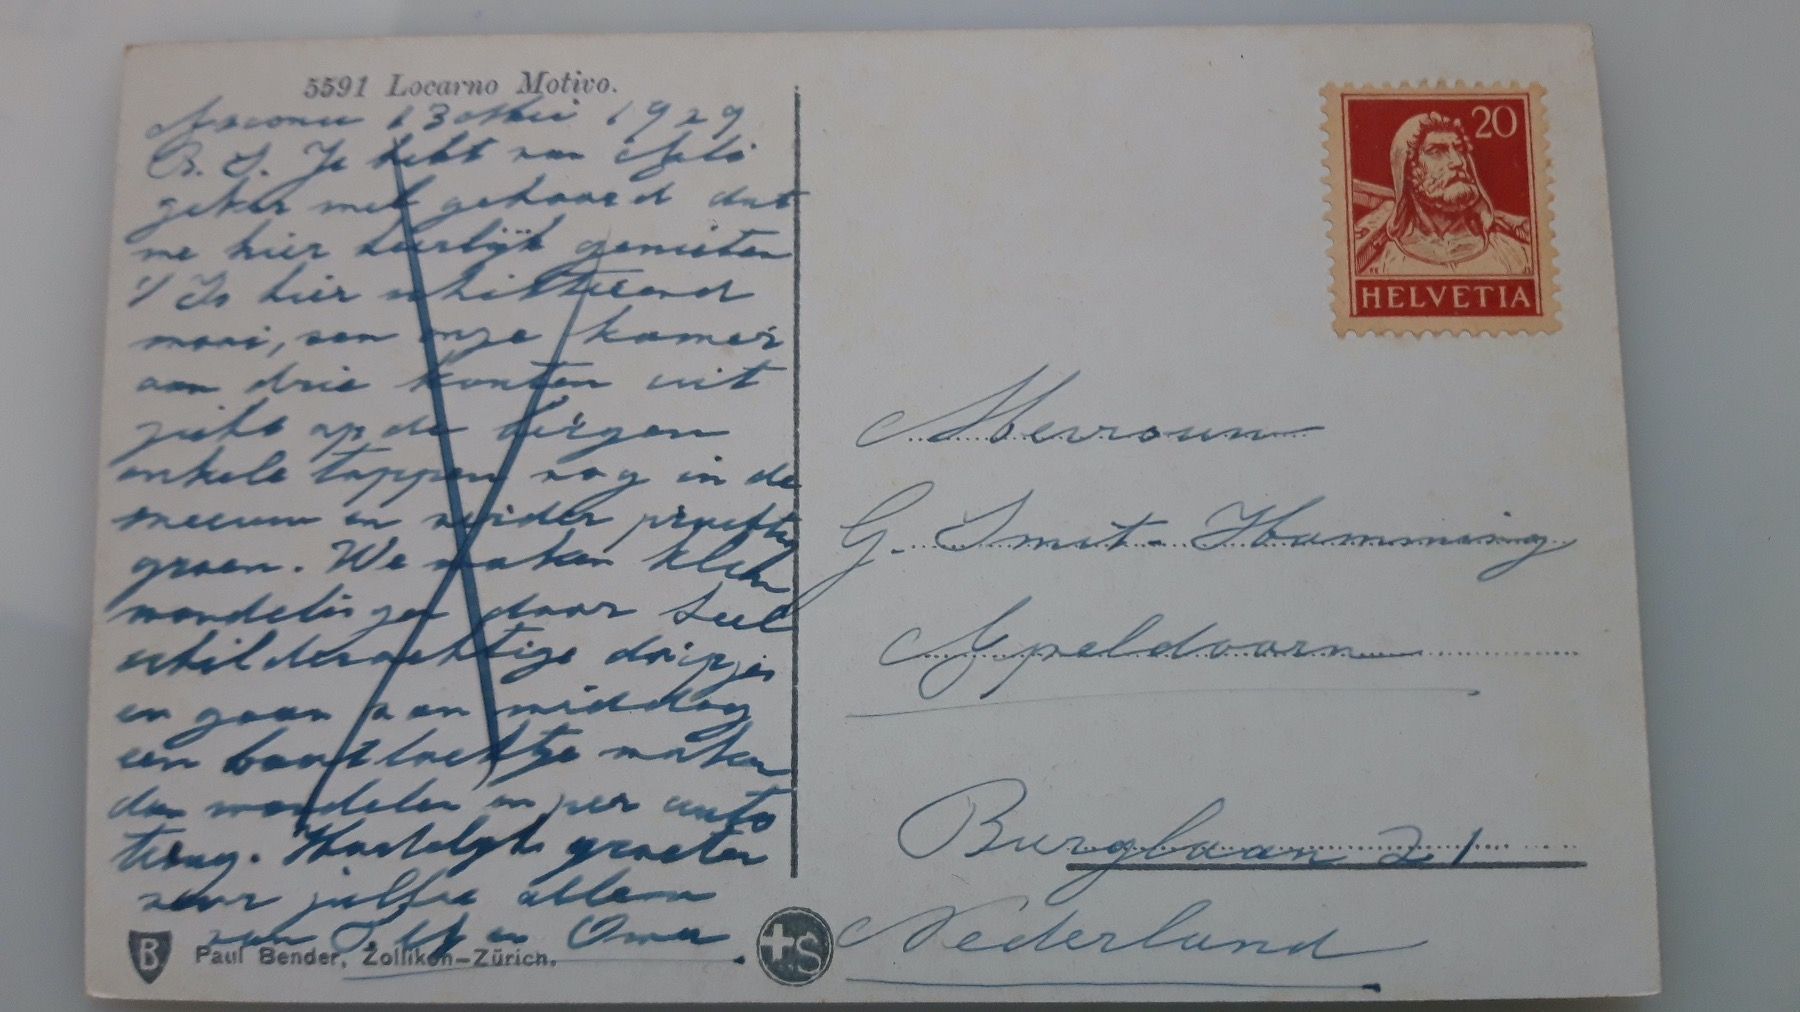 5591 Locarno Motivo.
Ascona 13 Mei 1929
B. S. Je hebt van
zeker wel gehoord dat
we hier heerlijk genieten
't Is hier schitterend
mooi, van onze kamer
aan drie kanten uit
zicht op de bergen
enkele toppen nog in de
sneeuw en verder prachtig
groen. We maken klein
wandelingen door heel
schilderachtige dorpjes
en gaan van middag
een boottochtje maken
dan wandelen en per auto
terug. Hartelijk groeten
voor jullie allen
van en Oma
B Paul Bender, Zollikon-Zürich.
+S
20
HELVETIA
Mevrouw
G. Smit-Hamming
Apeldoorn
Burglaan 21
Nederland